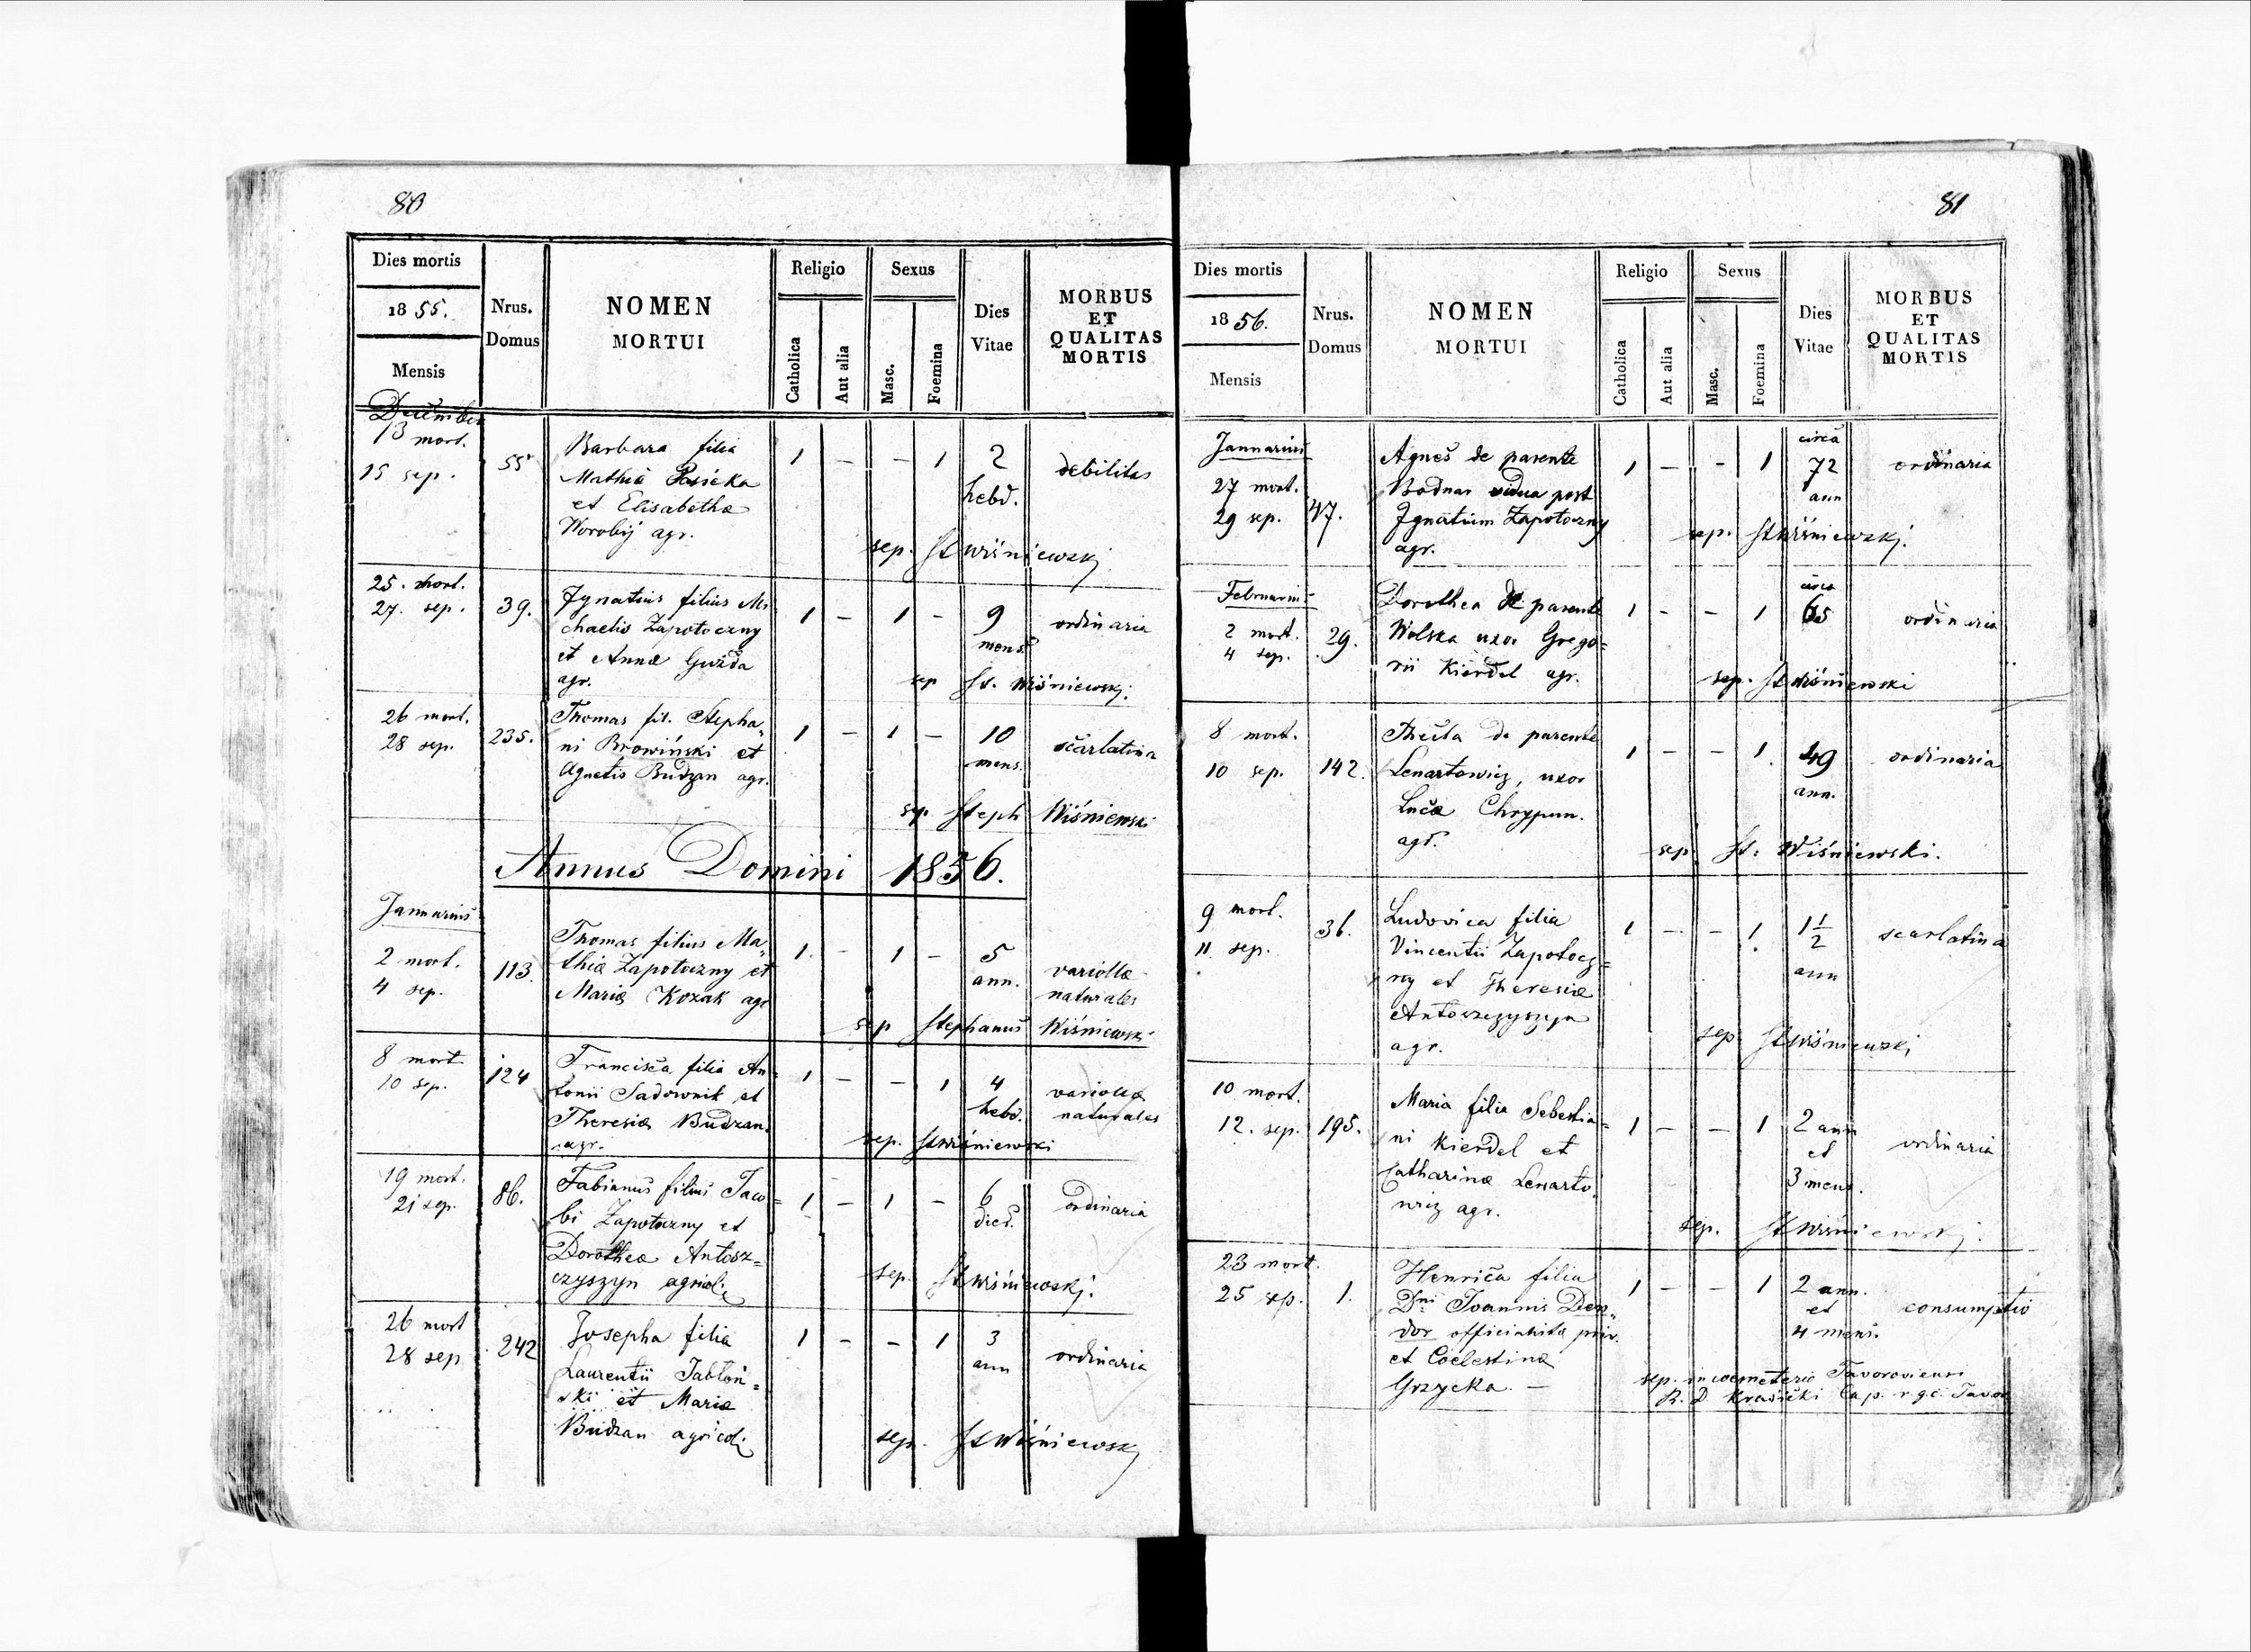 80
Dies mortis
1855.
Mensis
Nrus.
Domus
NOMEN
MORTUI
Religio
Catholica
Aut alia
Sexus
Masc.
Foemina
Dies
Vitae
MORBUS
ET
QUALITAS
MORTIS
December
13 mort.
15 sep.
55
Barbara filia
Mathiæ Pasieka
et Elisabethæ
Worobij agr.
1 — — 1
2
hebd.
debilitas
sep. St Wiśniewski
25. mort.
27. sep.
39.
Ignatius filius Mi
chaelis Zapotoczny
et Annæ Gwizda
agr.
1 — 1 —
9
mens.
ordinaria
sep St. Wiśniewski.
26 mort.
28 sep.
235.
Thomas fil. Stepha„
ni Browiński et
Agnetis Budzan agr.
1 — 1 —
10
mens.
scarlatina
sep. Steph Wiśniewski
Annus Domini 1856.
Januarius
2 mort.
4 sep.
113
Thomas filius Ma„
thiæ Zapotoczny et
Mariæ Kozak agr
1 — 1 —
5
ann.
variollæ
naturales
sep Stephanus Wiśniewski
8 mort
10 sep.
124
Francisca filia An=
tonii Sadownik et
Theresiæ Budzan.
agr.
1 — — 1
4
hebd.
variollæ
naturales
sep. St Wiśniewski
19 mort.
21 sep.
86.
Fabianus filius Jaco=
bi Zapotoczny et
Dorotheæ Antosz=
czyszyn agricol.
1 — 1 —
6
dies.
ordinaria
sep. St Wiśniewski.
26 mort
28 sep
242
Josepha filia
Laurentii Jabłoń=
ski et Mariæ
Budzan agricol.
1 — — 1
3
ann
ordinaria
sep. St Wiśniewski
81
Dies mortis
1856.
Mensis
Nrus.
Domus
NOMEN
MORTUI
Religio
Catholica
Aut alia
Sexus
Masc.
Foemina
Dies
Vitae
MORBUS
ET
QUALITAS
MORTIS
Januarius
27 mort.
29 sep.
47.
Agnes de parente
Bodnar vidua post
Ignatium Zapotoczny
agr.
1 — — 1
circa
72
ann
ordinaria
sep. St Wiśniewski.
Februarius
2 mort.
4 sep.
29.
Dorothea de parente
Wolska uxor Grego=
rii Kierdel agr.
1 — — 1
circa
65
ordinaria
sep. St Wiśniewski
8 mort.
10 sep.
142.
Thecla de parente
Lenartowicz, uxor
Lucæ Chrypun.
agr.
1 — — 1
49
ann.
ordinaria
sep St. Wiśniewski.
9 mort.
11 sep.
36.
Ludovica filia
Vincentii Zapotocz=
ny et Theresiæ
Antoszczyszyn
agr.
1 — — 1
1 1/2
ann
scarlatina
sep St Wiśniewski
10 mort.
12. sep.
195.
Maria filia Sebestia=
ni Kierdel et
Catharinæ Lenarto.
wicz agr.
1 — — 1
2 ann
et
3 mens.
ordinaria
sep. St Wiśniewski.
23 mort.
25 sep.
1.
Henrica filia
Dni Joannis Den„
dor officialista priv.
et Coelestinæ
Grzycka. —
1 — — 1
2 ann.
et
4 mens.
consumptio
sep. in coemeterio Javoroviensi
R. D. Krasicki Cap. r. g. c. Javor